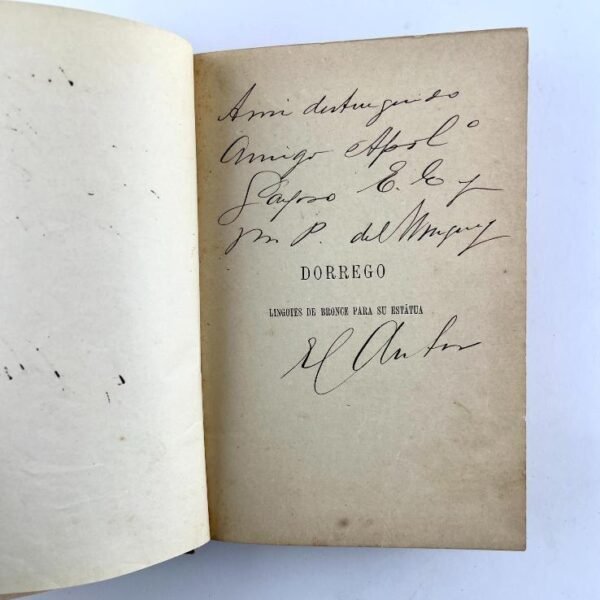 A mi distinguido
Amigo Apol.º
E. E. y
M. P. del Uruguay
DORREGO
LINGOTES DE BRONCE PARA SU ESTÁTUA
El Autor